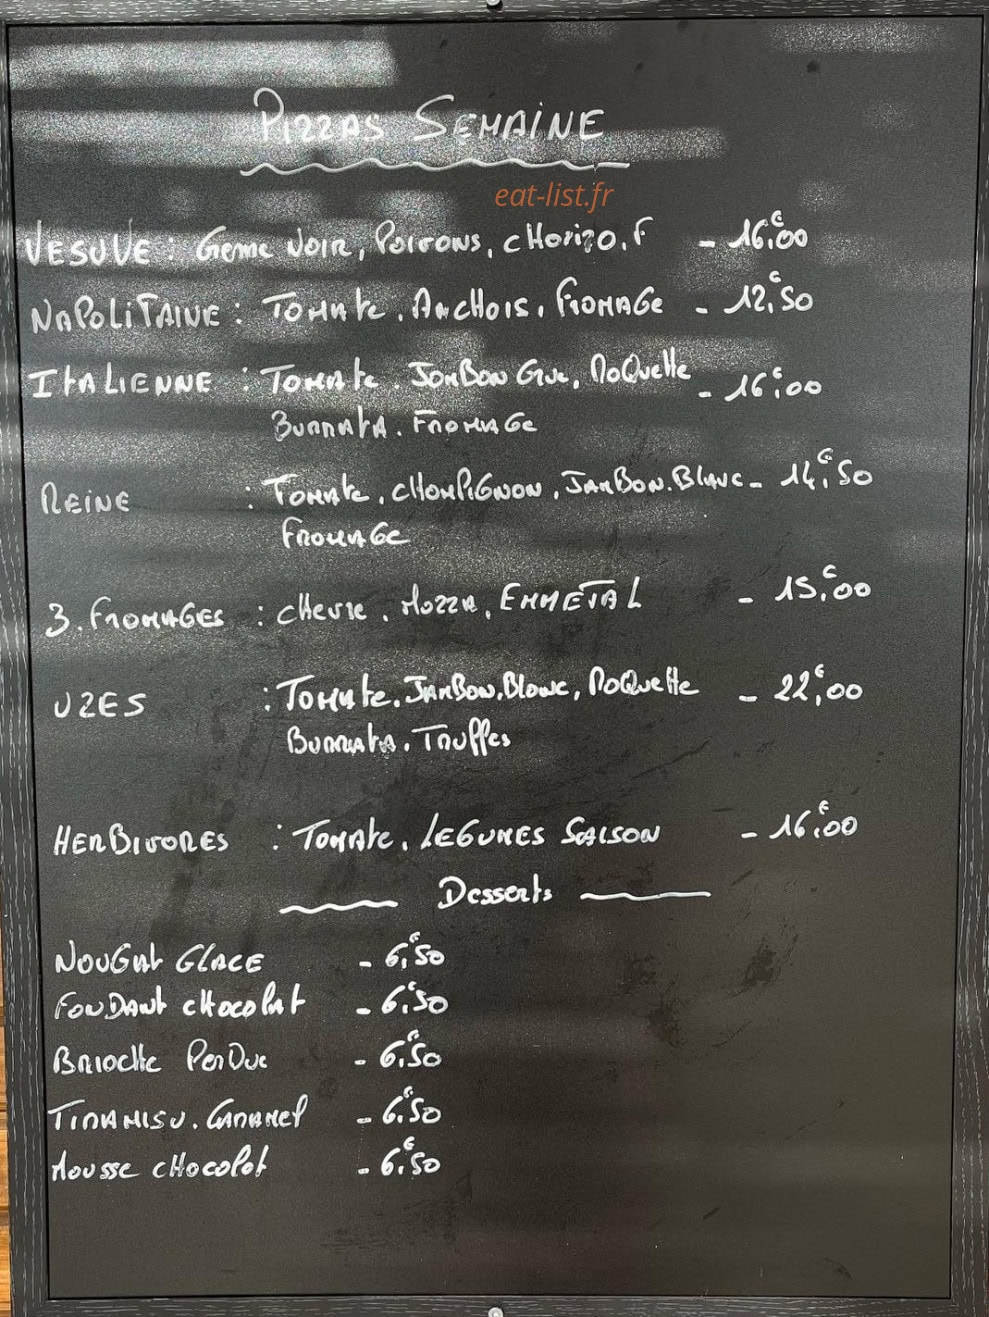 PIZZAS SEMAINE
eat-list.fr
VESUVE : Creme NOIR, POIVRONS, CHORIZO, F - 16,€00
NAPOLITAINE : TOMATE, ANCHOIS, FROMAGE - 12,€50
ITALIENNE : TOMATE, JAMBON CRU, ROQUETTE - 16,€00
BURRATA, FROMAGE
REINE : TOMATE, CHAMPIGNON, JAMBON.BLANC - 14,€50
FROMAGE
3.FROMAGES : CHEVRE, MOZZA, EMMETAL - 15,€00
UZES : TOMATE, JAMBON.BLANC, ROQUETTE - 22,€00
BURRATA. TRUFFES
HERBIVORES : TOMATE, LEGUMES SAISON - 16,€00
Desserts
NOUGAT GLACE - 6,€50
FONDANT CHOCOLAT - 6,€50
BRIOCHE PERDUE - 6,€50
TIRAMISU.CARAMEL - 6,€50
MOUSSE CHOCOLAT - 6,€50